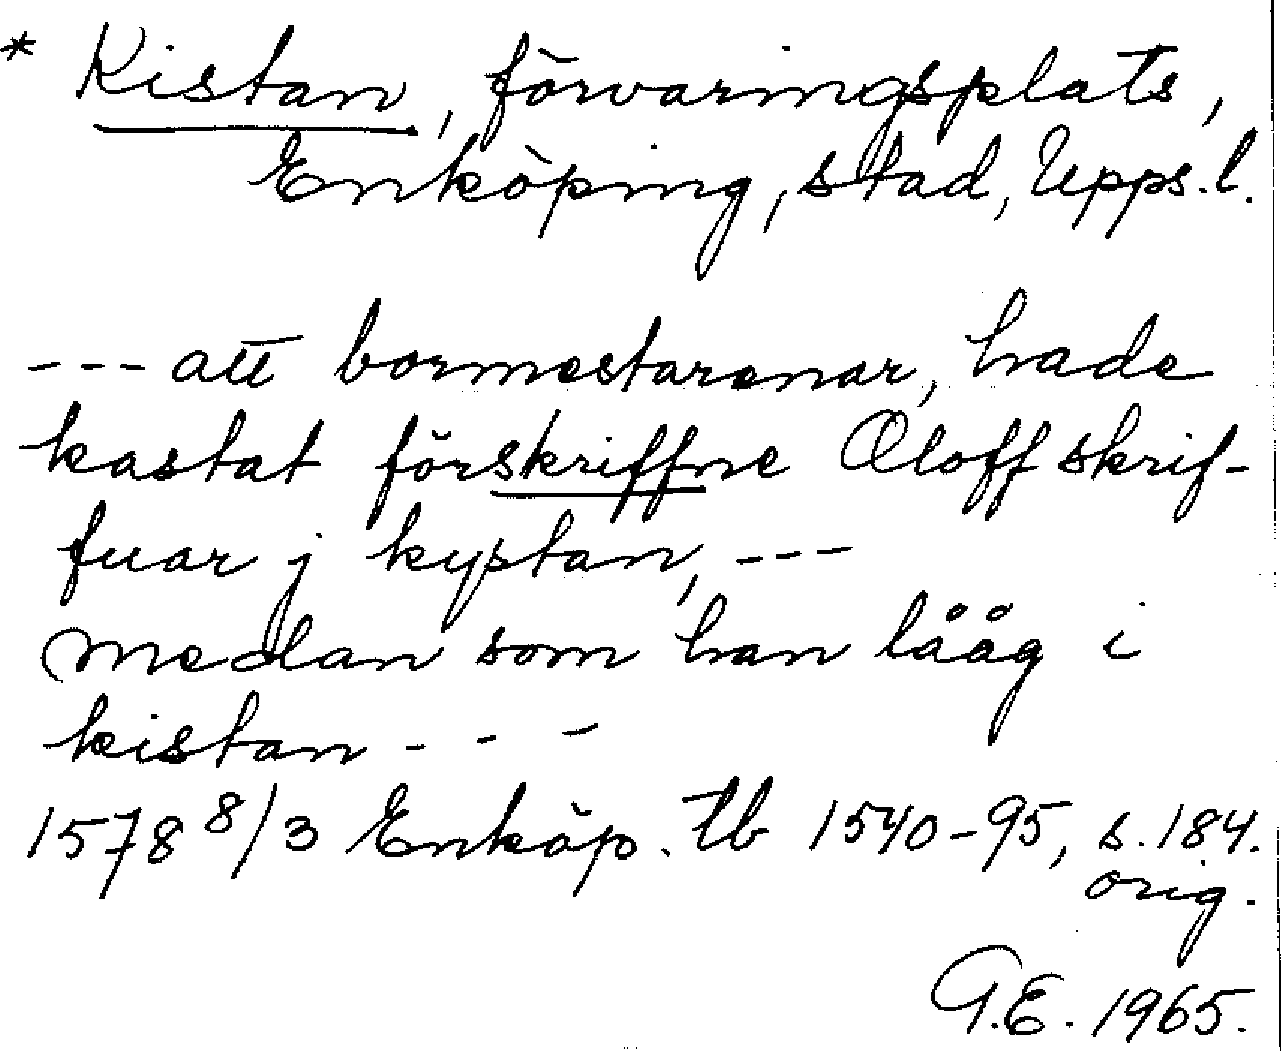 * Kistan, förvaringsplats,
Enköping, stad, Upps. l.
--- att bormestarenar, hade
kastat förskriffne Oloff skrif-
fuar j kystan, ---
medan som han lååg i
kistan ---
1578 8/3 Enköp. tb 1540-95, s. 184.
orig.
G.E. 1965.